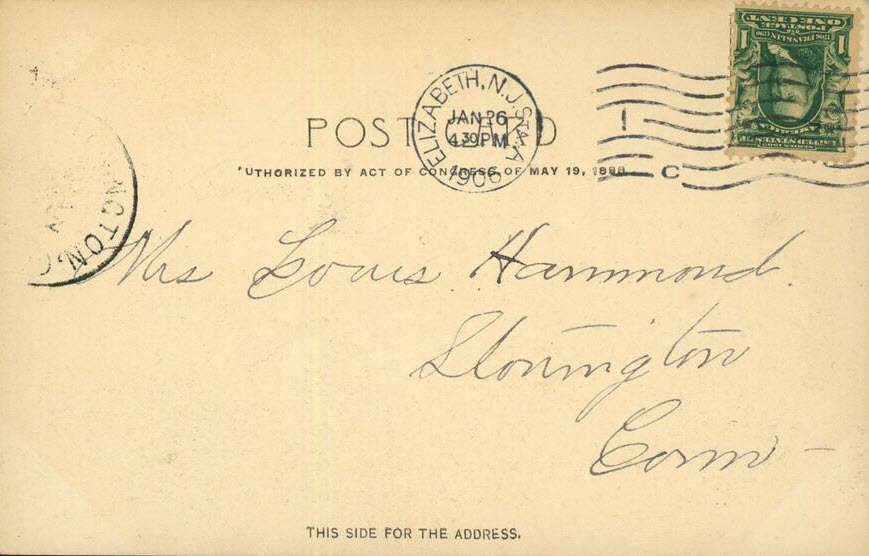 ONE CENT
POSTAGE
1706 FRANKLIN 1790
1 1
UNITED STATES OF
AMERICA
ELIZABETH, N.J. STA. A
JAN 26
4 30 PM
1906
C
POST CARD
'UTHORIZED BY ACT OF CONGRESS, OF MAY 19, 1898.
NGTON,
Mrs Louis Hammond.
Stonington
Conn -
THIS SIDE FOR THE ADDRESS.